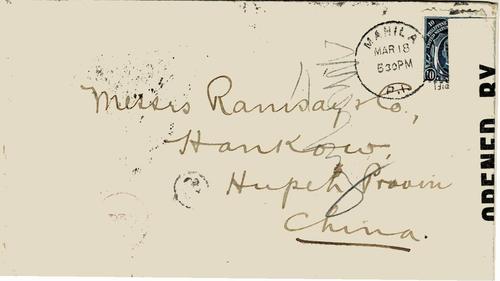 MANILA
MAR 18
5 30 PM
P.I.
10
10
Messrs Ramsay & Co.,
Hankow,
Hupeh Provin
China.
OPENED BY